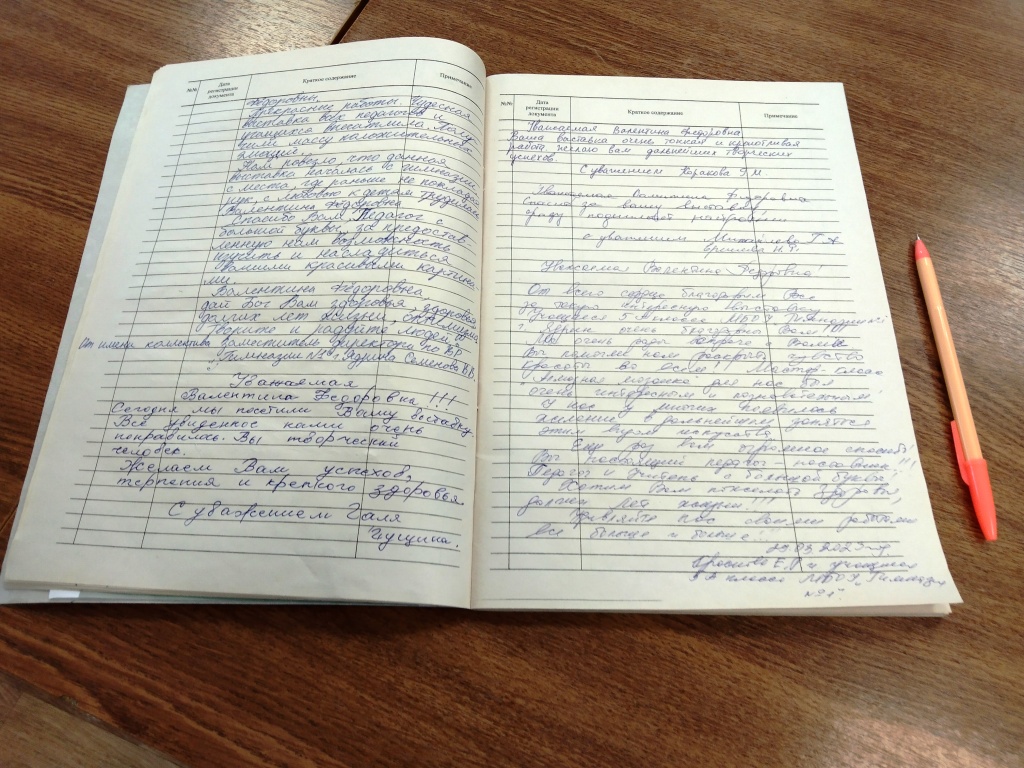 №№ Дата регистрации документа Краткое содержание Примечание
Федоровны.
Прекрасные работы. Чудесная
выставка всех педагогов и
учащихся
массу положительных
эмоций.
Нам повезло, что данная
выставка началась с гимназии,
с места, где раньше не покладая
рук, с любовью к детям трудилась
Валентина Федоровна
Спасибо Вам, Педагог с
большой буквы, за предостав-
ленную нам возможность
изучить и насладиться
Вашими красивыми картина-
ми.
Валентина Федоровна
дай Бог Вам здоровья, здоровья
долгих лет жизни,
Творите и радуйте людей
От имени коллектива заместитель директора по ВР
"Гимназии №1" г. Ядрина Семенова В.В.
Уважаемая
Валентина Федоровна!!!
Сегодня мы посетили Вашу выставку.
Всё увиденное нами очень
понравилась. Вы творческий
человек.
Желаем Вам успехов,
терпения и крепкого здоровья.
С уважением Галя
Чугцина.
№№ Дата регистрации документа Краткое содержание Примечание
Уважаемая Валентина Федоровна
Ваша выставка очень тонкая и кропотливая
работа. Желаю вам дальнейших творческих
успехов.
С уважением Коракова Г.М
Уважаемая Валентина Федоровна
Спасибо за вашу выставку
сразу поднимает настроение
с уважением Михайлова Г.А
Уважаемая Валентина Федоровна!
От всего сердца благодарим Вас
за такую интересную выставку!
Учащиеся 5 класса МБОУ "Гимназия
очень благодарны Вам!
Мы очень рады встрече с Вами
Вы помогли нам раскрыть чувство
красоты во всем! Мастер-класс
"Алмазная мозаика" для нас был
очень интересным и познавательным!
У нас у многих появилось
желание в дальнейшем заняться
этим видом искусства.
Еще раз Вам огромное спасибо!
Вы настоящий педагог - наставник!!!
Педагог и Учитель с большой буквы!
Хотим Вам пожелать здоровья,
долгих лет жизни.
Удивляйте нас своими работами
все больше и больше!
29.03.2023 г.
Е.Г и учащиеся
5 класса МБОУ "Гимназия
№1".